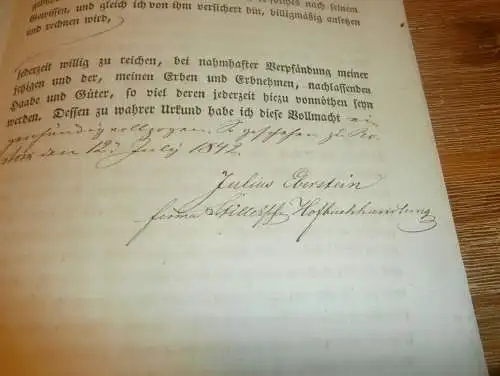 solches nach seinem
Gewissen, und gleich ich von ihm versichert bin, billigmäßig ansetzen
und rechnen wird,
jederzeit willig zu reichen, bei nahmhafter Verpfändung meiner
jetzigen und der, meinen Erben und Erbnehmen, nachlassenden
Haabe und Güter, so viel deren jederzeit hiezu vonnöthen seyn
werden. Dessen zu wahrer Urkund habe ich diese Vollmacht ein
genhändig vollzogen. So geschehen zu Ro-
stock den 12t July 1842.
Julius Eberstein
firma Stillersche Hofbuchhandlung